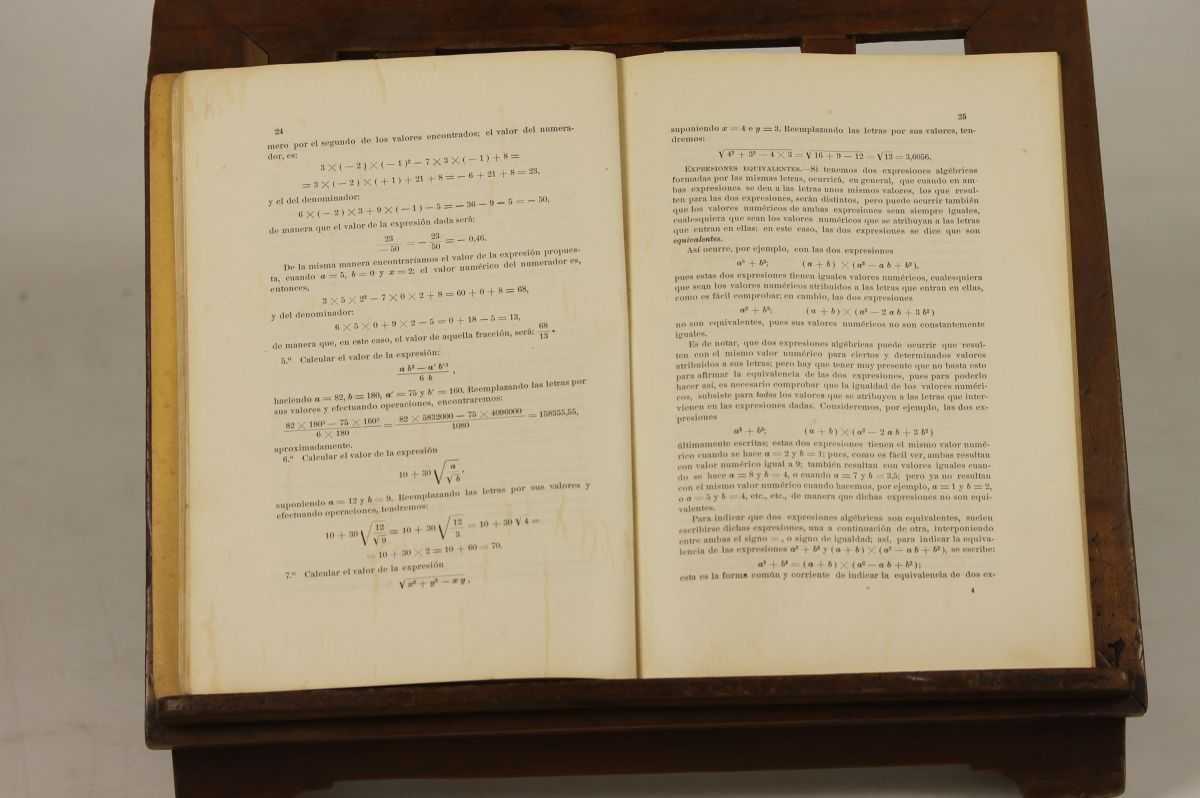 24
mero por el segundo de los valores encontrados; el valor del numera-
dor, es:
3 × (− 2) × (− 1)² − 7 × 3 × (− 1) + 8 =
= 3 × (− 2) × (+ 1) + 21 + 8 = − 6 + 21 + 8 = 23,
y el del denominador:
6 × (− 2) × 3 + 9 × (− 1) − 5 = − 36 − 9 − 5 = − 50,
de manera que el valor de la expresión dada será:
23 / − 50 = − 23 / 50 = − 0,46.
De la misma manera encontraríamos el valor de la expresión propues-
ta, cuando a = 5, b = 0 y x = 2; el valor numérico del numerador es,
entonces,
3 × 5 × 2² − 7 × 0 × 2 + 8 = 60 + 0 + 8 = 68,
y del denominador:
6 × 5 × 0 + 9 × 2 − 5 = 0 + 18 − 5 = 13,
de manera que, en este caso, el valor de aquella fracción, será: 68 / 13.
5.º Calcular el valor de la expresión:
a b³ − a′ b′³ / 6 b,
haciendo a = 82, b = 180, a′ = 75 y b′ = 160. Reemplazando las letras por
sus valores y efectuando operaciones, encontraremos:
82 × 180³ − 75 × 160³ / 6 × 180 = 82 × 5832000 − 75 × 4096000 / 1080 = 158355,55,
aproximadamente.
6.º Calcular el valor de la expresión
10 + 30 √(a / √b),
suponiendo a = 12 y b = 9. Reemplazando las letras por sus valores y
efectuando operaciones, tendremos:
10 + 30 √(12 / √9) = 10 + 30 √(12 / 3) = 10 + 30 √4 =
= 10 + 30 × 2 = 10 + 60 = 70.
7.º Calcular el valor de la expresión
√(x² + y² − x y),
25
suponiendo x = 4 e y = 3. Reemplazando las letras por sus valores, ten-
dremos:
√(4² + 3² − 4 × 3) = √(16 + 9 − 12) = √13 = 3,6056.
EXPRESIONES EQUIVALENTES.—Si tenemos dos expresiones algébricas
formadas por las mismas letras, ocurrirá, en general, que cuando en am-
bas expresiones se den a las letras unos mismos valores, los que resul-
ten para las dos expresiones, serán distintos, pero puede ocurrir también
que los valores numéricos de ambas expresiones sean siempre iguales,
cualesquiera que sean los valores numéricos que se atribuyan a las letras
que entran en ellas: en este caso, las dos expresiones se dice que son
equivalentes.
Así ocurre, por ejemplo, con las dos expresiones
a³ + b³; (a + b) × (a² − a b + b²),
pues estas dos expresiones tienen iguales valores numéricos, cualesquiera
que sean los valores numéricos atribuidos a las letras que entran en ellas,
como es fácil comprobar; en cambio, las dos expresiones
a³ + b³; (a + b) × (a² − 2 a b + 3 b²)
no son equivalentes, pues sus valores numéricos no son constantemente
iguales.
Es de notar, que dos expresiones algébricas puede ocurrir que resul-
ten con el mismo valor numérico para ciertos y determinados valores
atribuidos a sus letras; pero hay que tener muy presente que no basta esto
para afirmar la equivalencia de las dos expresiones, pues para poderlo
hacer así, es necesario comprobar que la igualdad de los valores numéri-
cos, subsiste para todos los valores que se atribuyen a las letras que inter-
vienen en las expresiones dadas. Consideremos, por ejemplo, las dos ex-
presiones
a³ + b³; (a + b) × (a² − 2 a b + 3 b²)
últimamente escritas; estas dos expresiones tienen el mismo valor numé-
rico cuando se hace a = 2 y b = 1; pues, como es fácil ver, ambas resultan
con valor numérico igual a 9; también resultan con valores iguales cuan-
do se hace a = 8 y b = 4, o cuando a = 7 y b = 3,5; pero ya no resultan
con el mismo valor numérico cuando hacemos, por ejemplo, a = 1 y b = 2,
o a = 5 y b = 4, etc., etc., de manera que dichas expresiones no son equi-
valentes.
Para indicar que dos expresiones algébricas son equivalentes, suelen
escribirse dichas expresiones, una a continuación de otra, interponiendo
entre ambas el signo = , o signo de igualdad; así, para indicar la equiva-
lencia de las expresiones a³ + b³ y (a + b) × (a² − a b + b²), se escribe:
a³ + b³ = (a + b) × (a² − a b + b²);
esta es la forma común y corriente de indicar la equivalencia de dos ex-
4